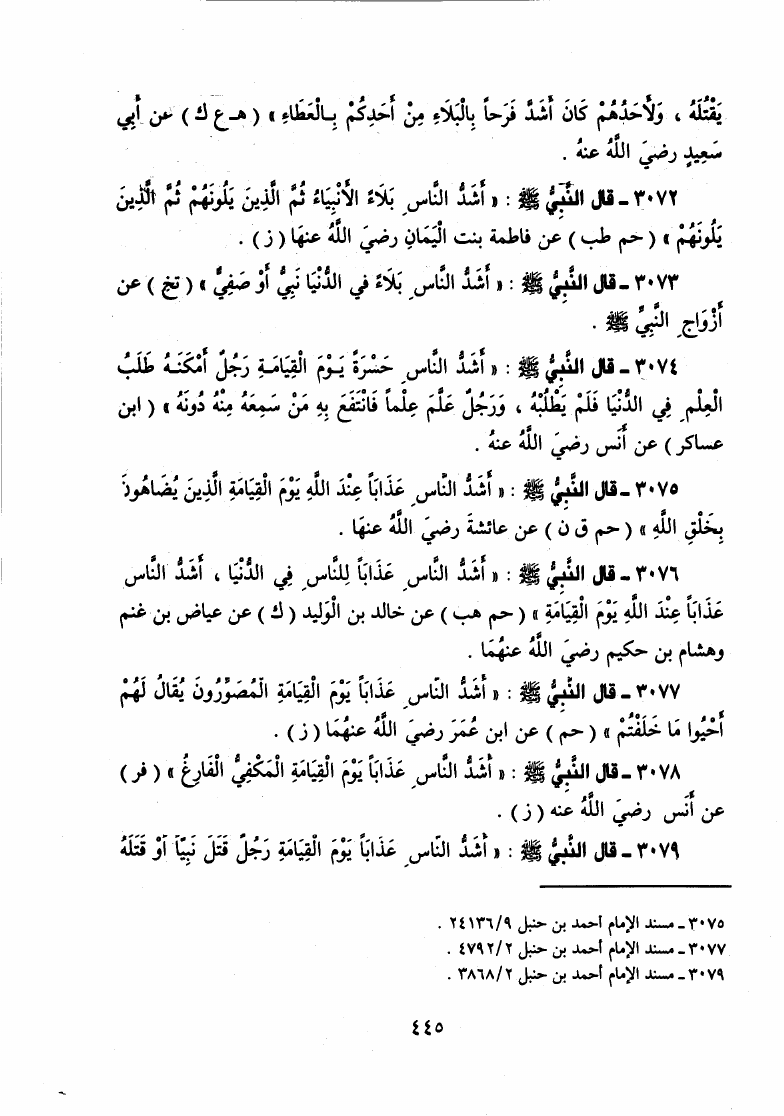 يَقْتُلَهُ ، وَلَأَحَدُهُمْ كَانَ أَشَدَّ فَرَحاً بِالْبَلَاءِ مِنْ أَحَدِكُمْ بِالْعَطَاءِ » ( هـ ع ك ) عن أَبِي
سَعِيدٍ رضيَ اللَّهُ عنهُ .
٣٠٧٢ ـ قال النَّبِيُّ ﷺ : « أَشَدُّ النَّاسِ بَلَاءً الأَنْبِيَاءُ ثُمَّ الَّذِينَ يَلُونَهُمْ ثُمَّ الَّذِينَ
يَلُونَهُمْ » ( حم طب ) عن فاطمة بنت الْيَمَانِ رضيَ اللَّهُ عنهَا ( ز ) .
٣٠٧٣ ـ قال النَّبِيُّ ﷺ : « أَشَدُّ النَّاسِ بَلَاءً في الدُّنْيَا نَبِيٌّ أَوْ صَفِيٌّ » ( تخ ) عن
أَزْوَاجِ النَّبِيِّ ﷺ .
٣٠٧٤ ـ قال النَّبِيُّ ﷺ : « أَشَدُّ النَّاسِ حَسْرَةً يَوْمَ الْقِيَامَةِ رَجُلٌ أَمْكَنَهُ طَلَبُ
الْعِلْمِ فِي الدُّنْيَا فَلَمْ يَطْلُبْهُ ، وَرَجُلٌ عَلَّمَ عِلْماً فَانْتَفَعَ بِهِ مَنْ سَمِعَهُ مِنْهُ دُونَهُ » ( ابن
عساكر ) عن أَنس رضيَ اللَّهُ عنهُ .
٣٠٧٥ ـ قال النَّبِيُّ ﷺ : « أَشَدُّ النَّاسِ عَذَاباً عِنْدَ اللَّهِ يَوْمَ الْقِيَامَةِ الَّذِينَ يُضَاهُونَ
بِخَلْقِ اللَّهِ » ( حم ق ن ) عن عائشةَ رضيَ اللَّهُ عنهَا .
٣٠٧٦ ـ قال النَّبِيُّ ﷺ : « أَشَدُّ النَّاسِ عَذَاباً لِلنَّاسِ فِي الدُّنْيَا ، أَشَدُّ النَّاسِ
عَذَاباً عِنْدَ اللَّهِ يَوْمَ الْقِيَامَةِ » ( حم هب ) عن خالد بن الْوَلِيد ( ك ) عن عياض بن غنم
وهشام بن حكيم رضيَ اللَّهُ عنهُمَا .
٣٠٧٧ ـ قال النَّبِيُّ ﷺ : « أَشَدُّ النَّاسِ عَذَاباً يَوْمَ الْقِيَامَةِ الْمُصَوِّرُونَ يُقَالُ لَهُمْ
أَحْيُوا مَا خَلَقْتُمْ » ( حم ) عن ابن عُمَرَ رضيَ اللَّهُ عنهُمَا ( ز ) .
٣٠٧٨ ـ قال النَّبِيُّ ﷺ : « أَشَدُّ النَّاسِ عَذَاباً يَوْمَ الْقِيَامَةِ الْمَكْفِيُّ الْفَارِغُ » ( فر )
عن أَنس رضيَ اللَّهُ عنه ( ز ) .
٣٠٧٩ ـ قال النَّبِيُّ ﷺ : « أَشَدُّ النَّاسِ عَذَاباً يَوْمَ الْقِيَامَةِ رَجُلٌ قَتَلَ نَبِيّاً أَوْ قَتَلَهُ
٣٠٧٥ ـ مسند الإمام أحمد بن حنبل ٢٤١٣٦/٩ .
٣٠٧٧ ـ مسند الإمام أحمد بن حنبل ٤٧٩٢/٢ .
٣٠٧٩ ـ مسند الإمام أحمد بن حنبل ٣٨٦٨/٢ .
٤٤٥